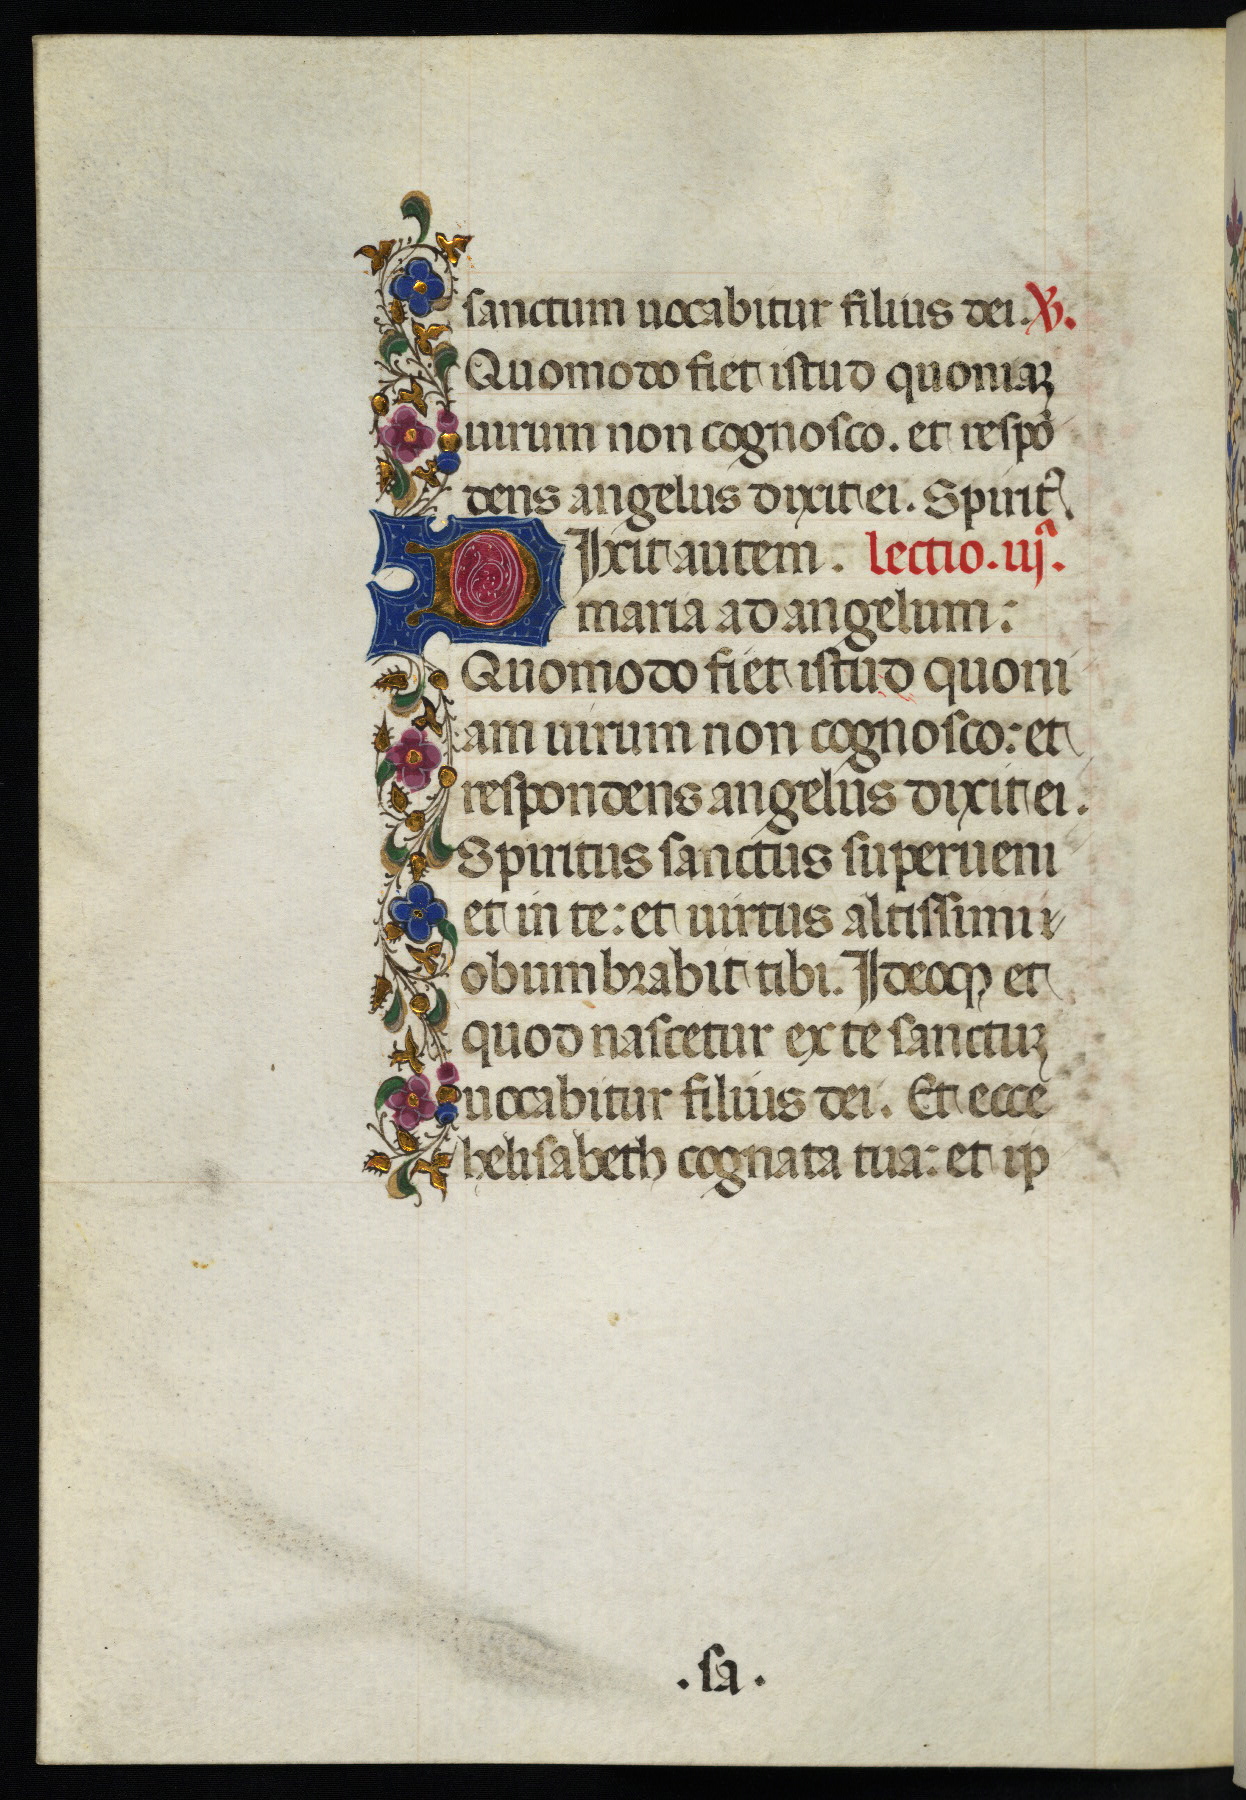 sanctum uocabitur filius dei. ℣.
Quomodo fiet istud quoniaꝫ
uirum non cognosco. et respō
dens angelus dixit ei. Spiritꝰ
Dixit autem. lectio. iijª.
maria ad angelum:
Quomodo fiet istud quoni
am uirum non cognosco: et
respondens angelus dixit ei.
Spiritus sanctus superueni
et in te: et uirtus altissimi
obumbrabit tibi. Ideoqꝫ et
quod nascetur ex te sanctuꝫ
uocabitur filius dei. Et ecce
helisabeth cognata tua: et ip
. sa .